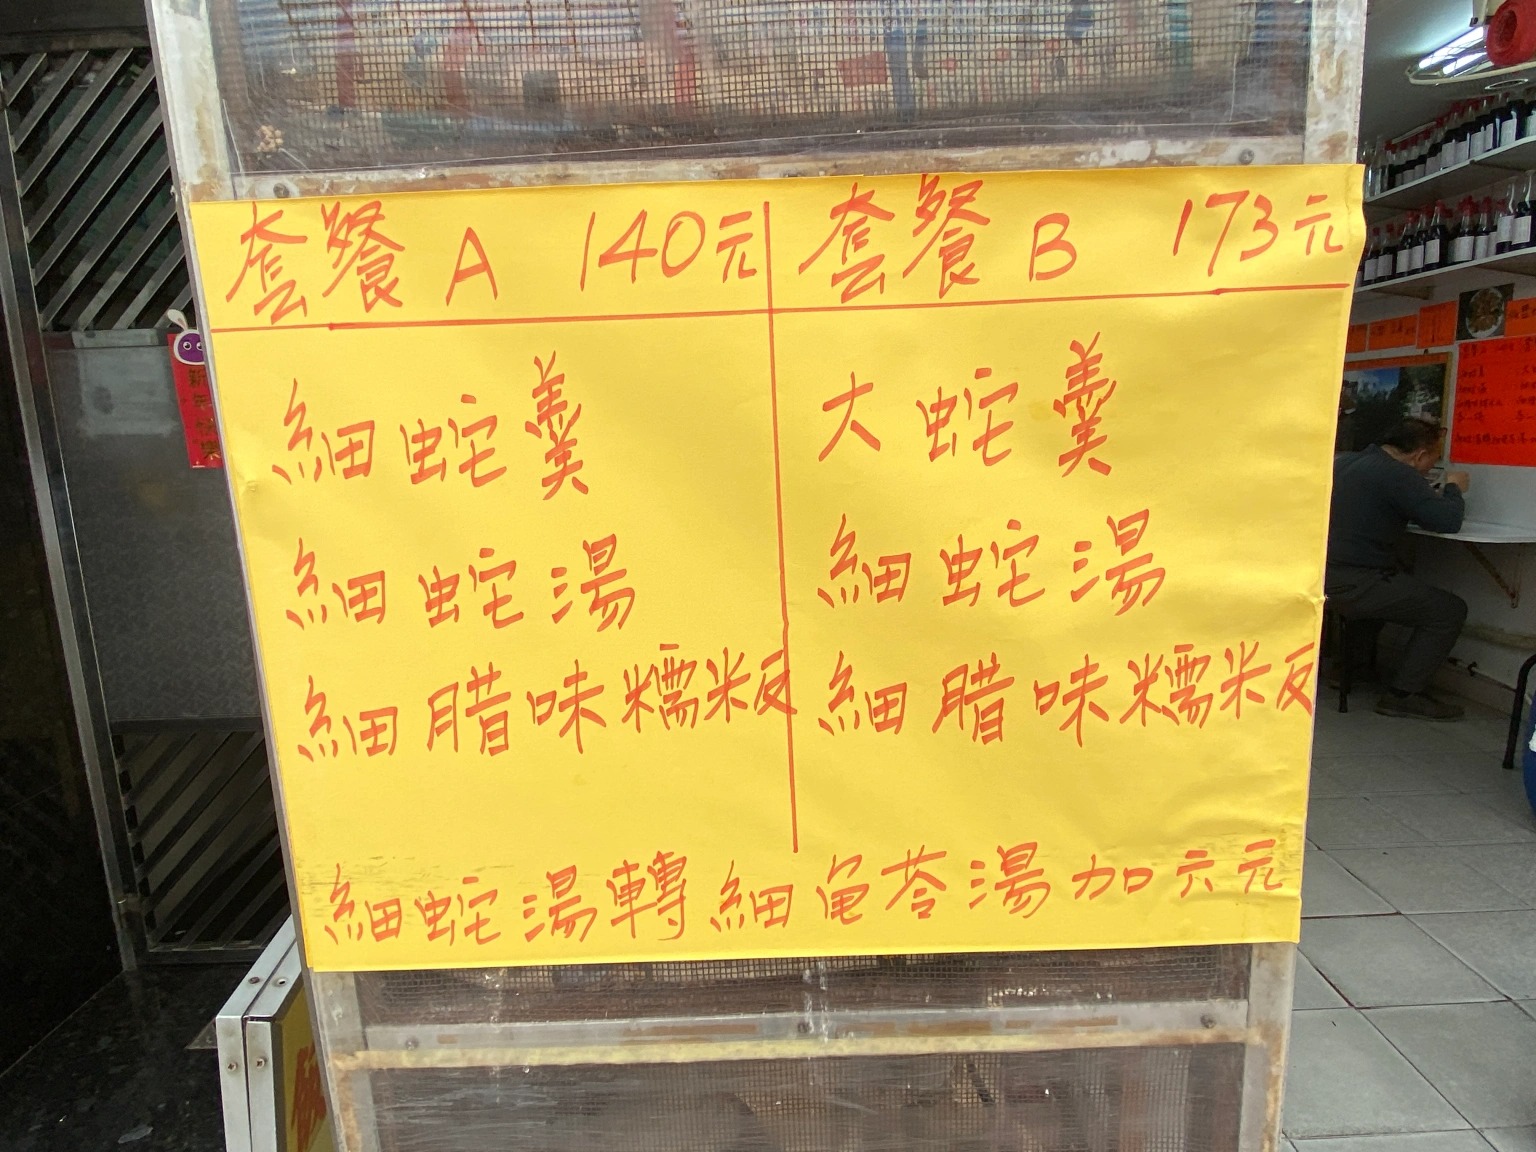 套餐 A 140元
細蛇羹
細蛇湯
細腊味糯米反
套餐 B 173元
大蛇羹
細蛇湯
細腊味糯米反
細蛇湯轉細龟苓湯加六元
新年快樂